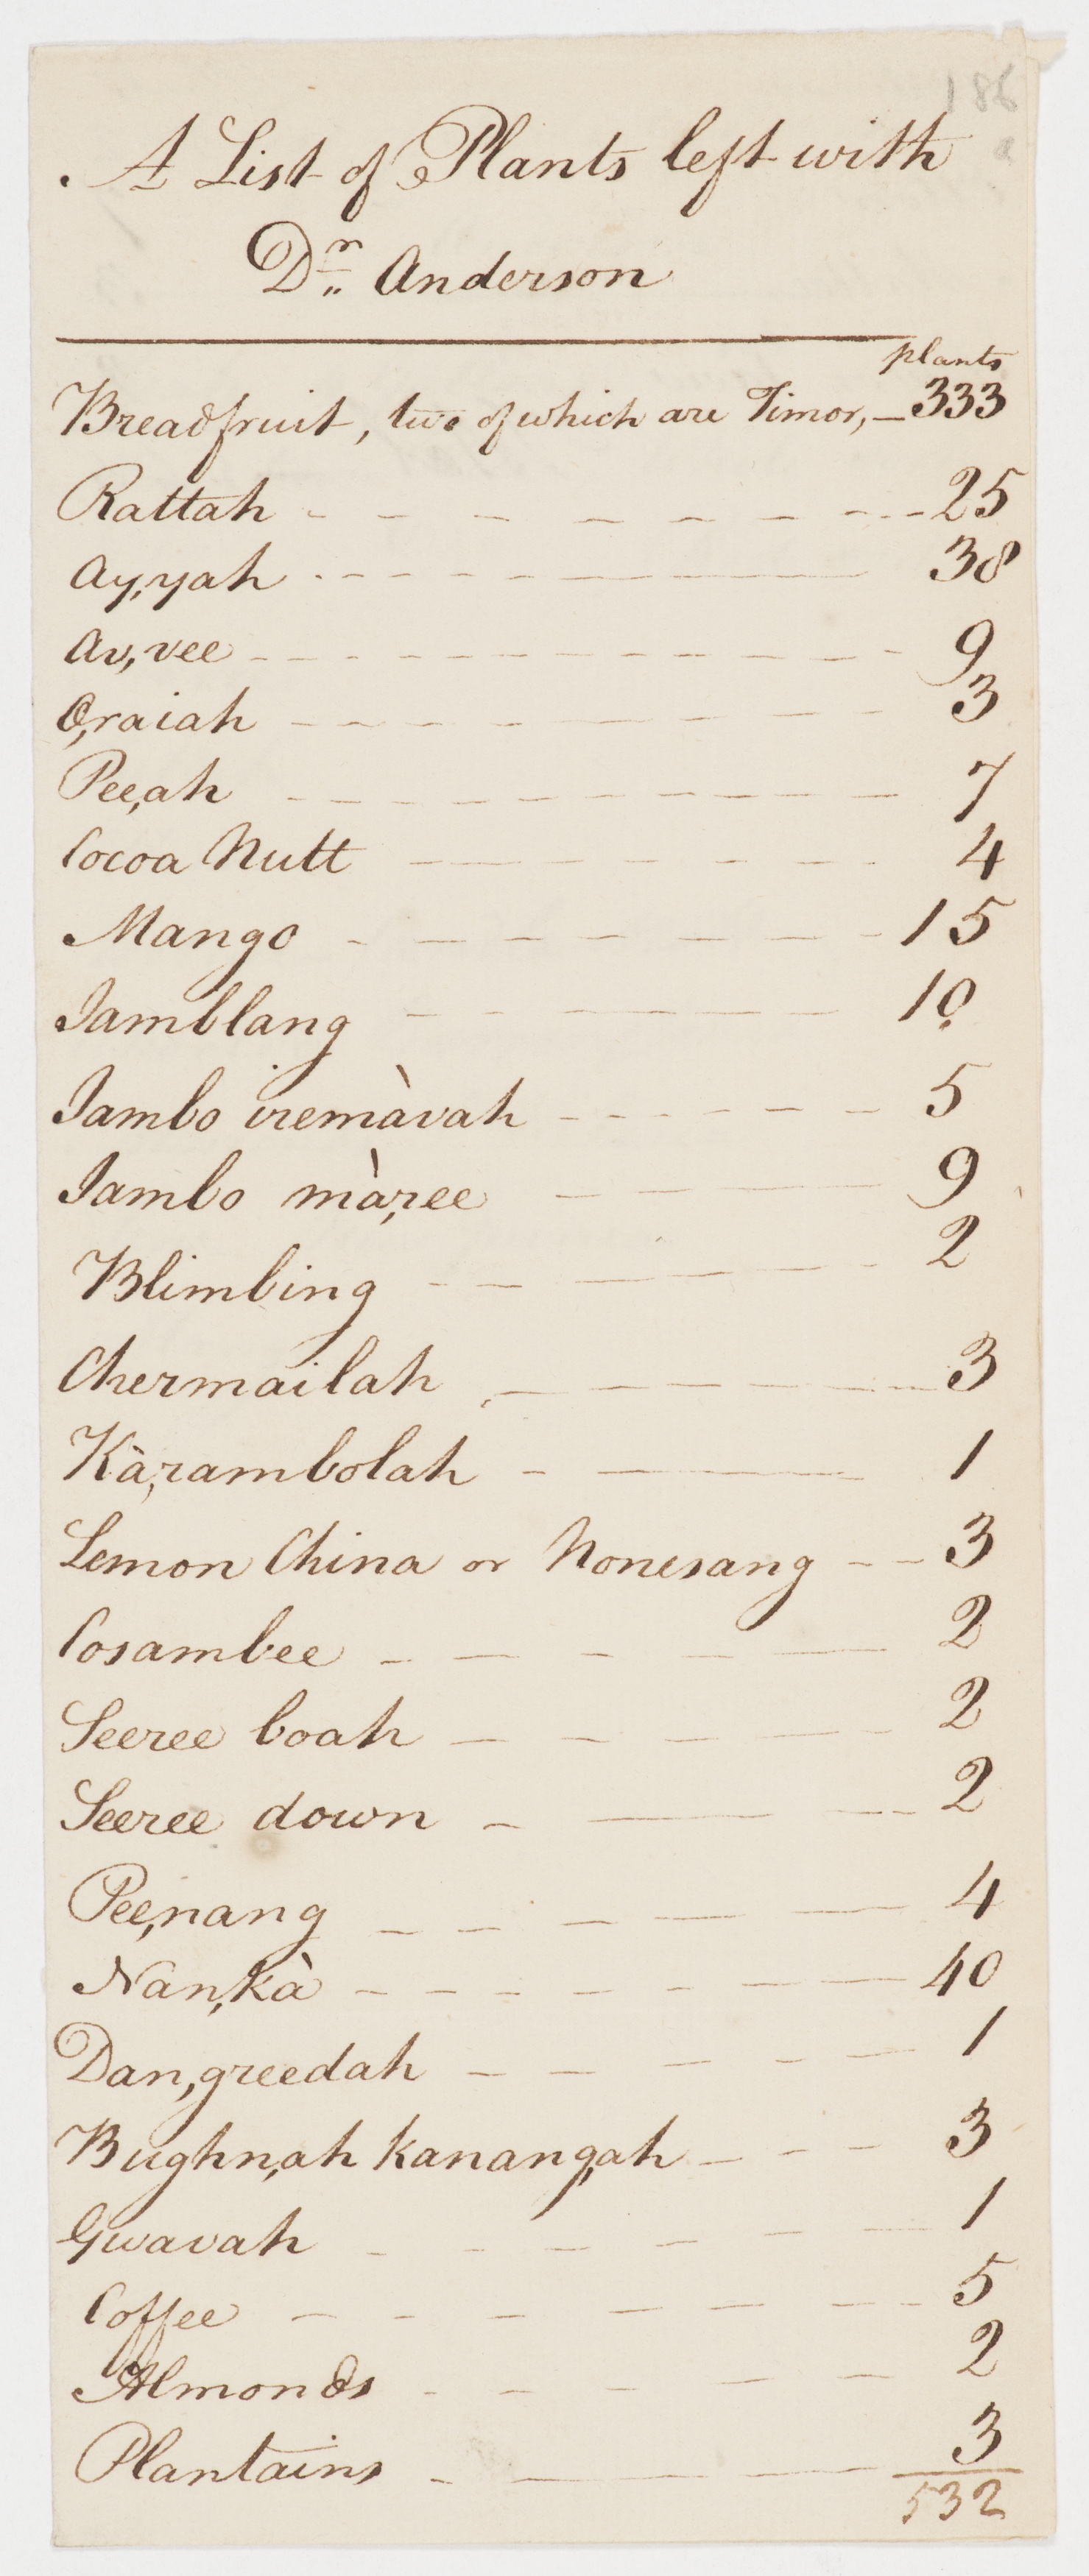 186
a
A List of Plants left with
Dr. Anderson
plants
Breadfruit, two of which are Timor, 333
Rattah 25
Ay,yah 38
Av,vee 9
O,raiah 3
Pee,ah 7
Cocoa Nutt 4
Mango 15
Jamblang 10
Jambo iremàvah 5
Jambo mà,ree 9
Blimbing 2
Chermailah 3
Kà,rambolah 1
Lemon China or Nonesang 3
Cosambee 2
Seeree boah 2
Seeree down 2
Pee,nang 4
Nan,kà 40
Dan,greedah 1
Bughn,ah kanang,ah 3
Gwavah 1
Coffee 5
Almonds 2
Plantains 3
532